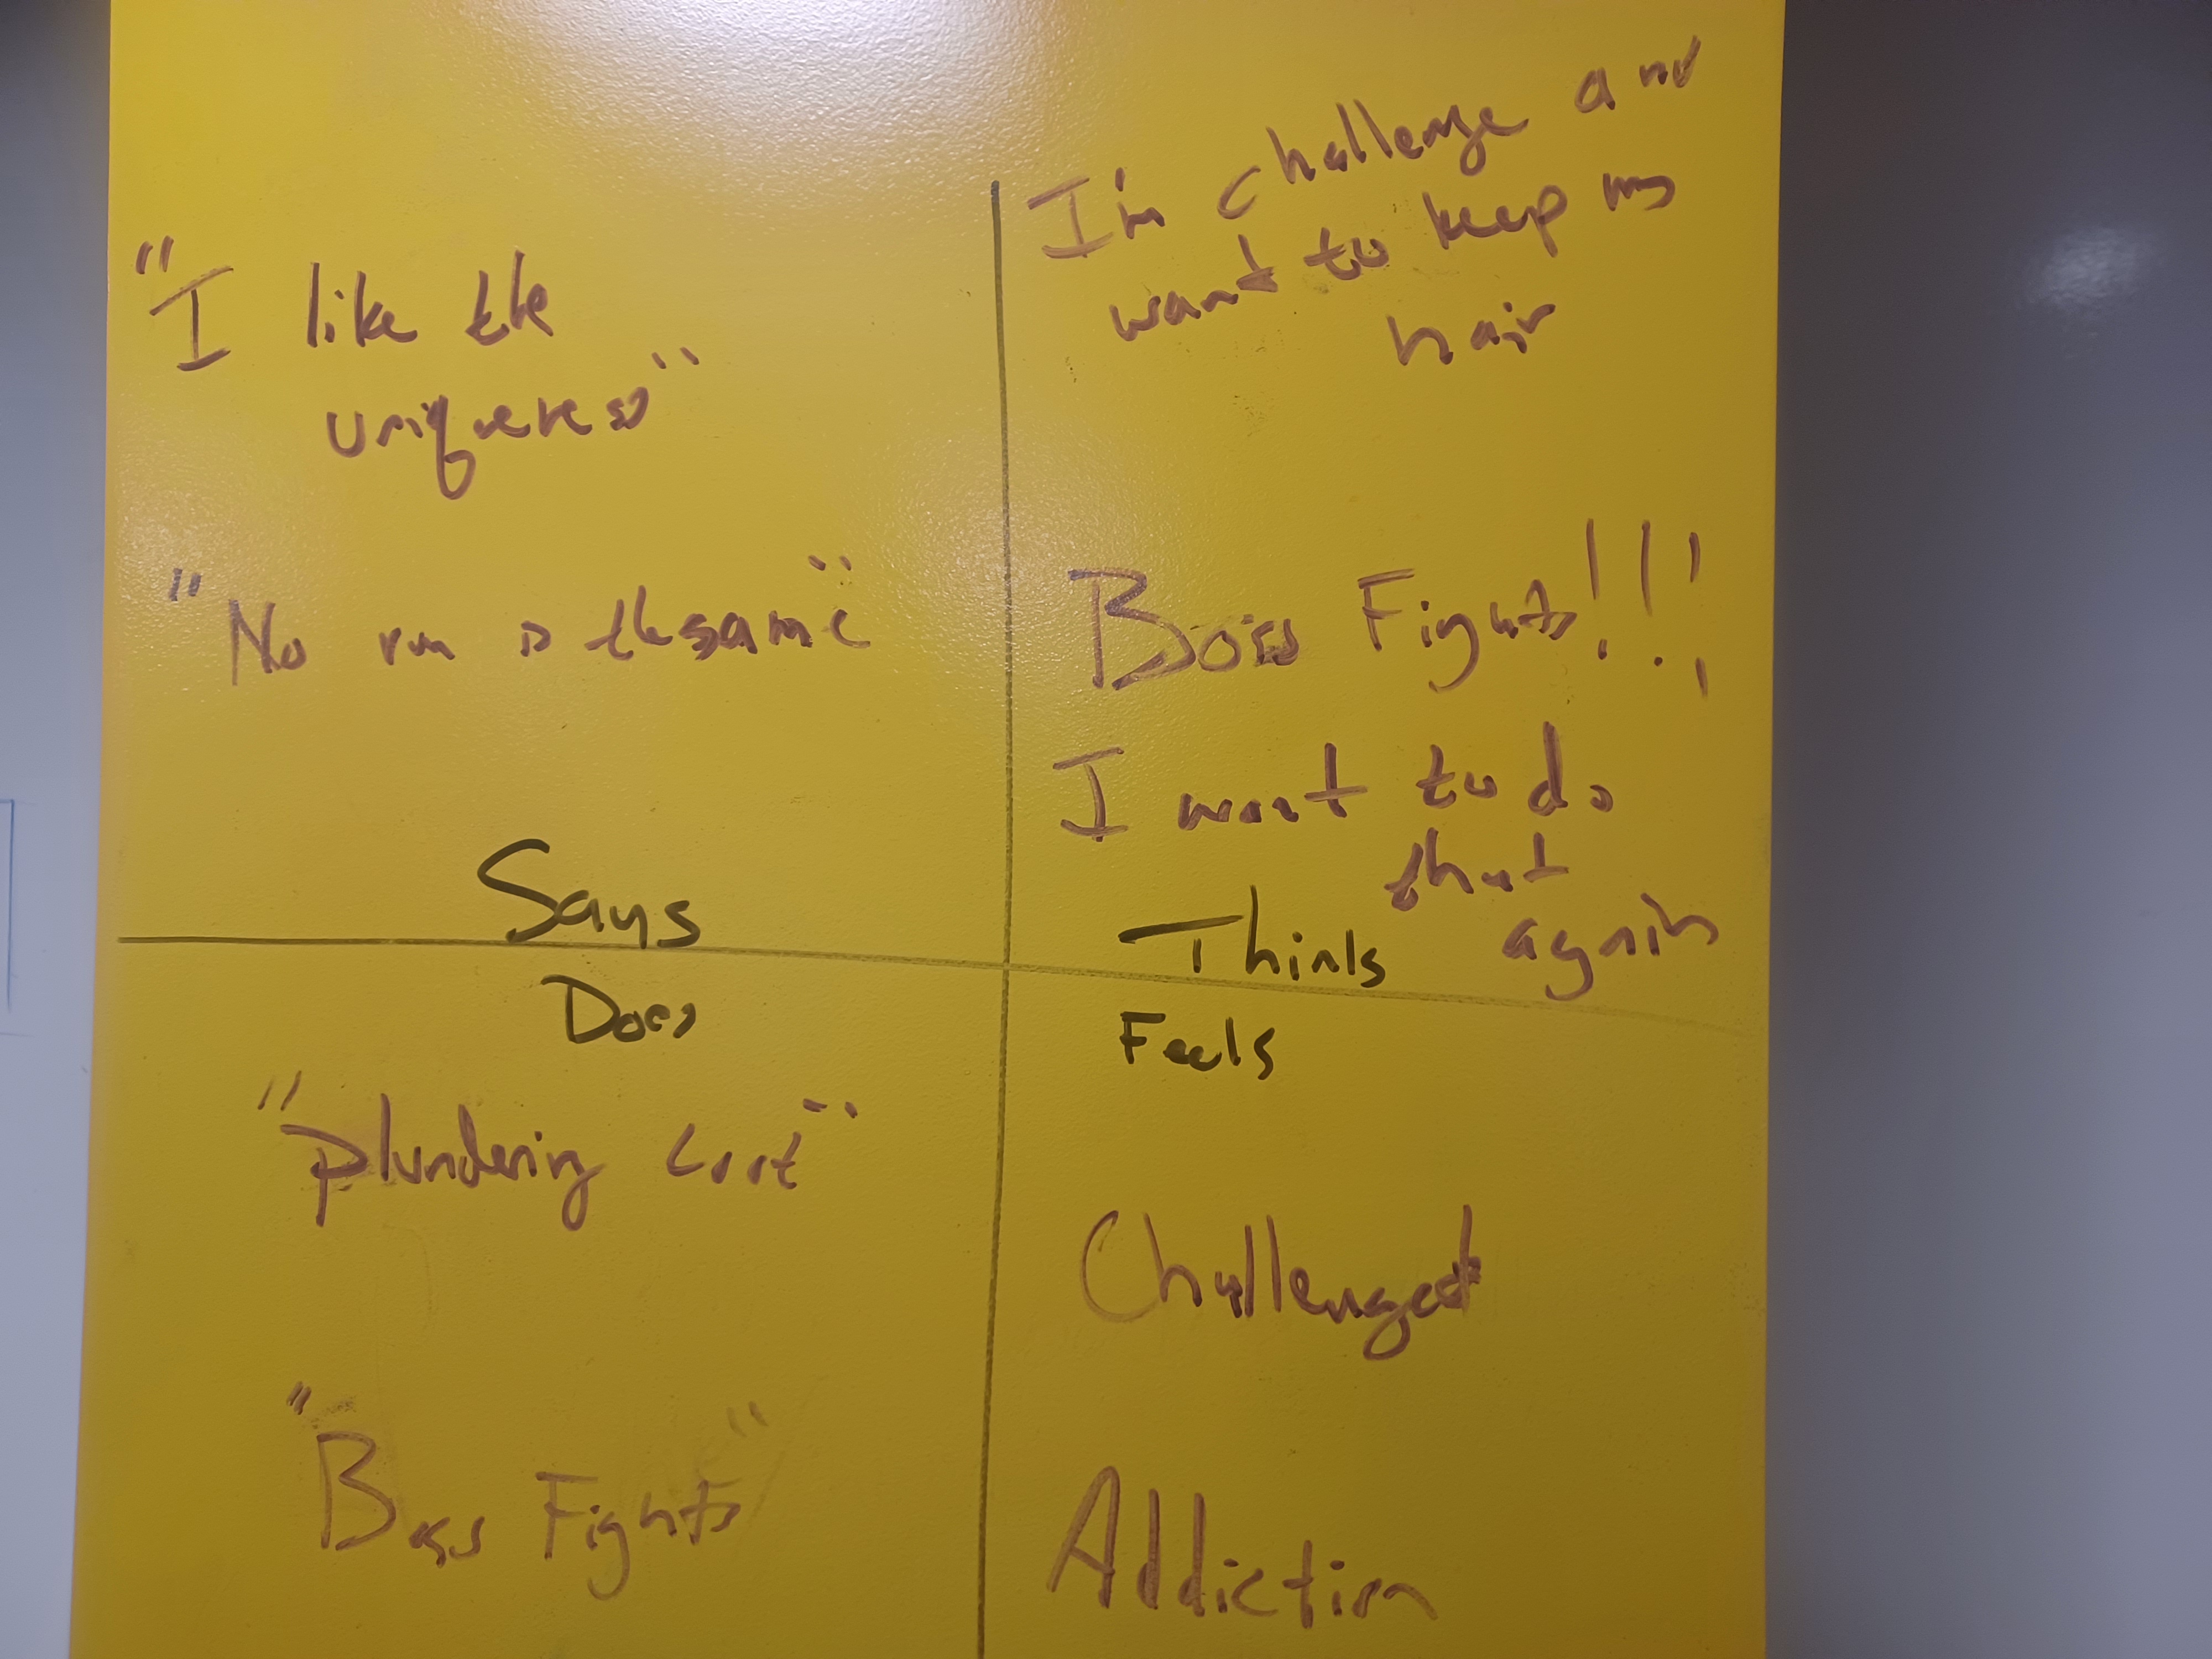 "I like the
uniqueness"
"No run is the same"
Says
I'm challenge and
want to keep my
hair
Boss Fights!!!
I want to do
that
again
Thinks
Does
"Plundering
"Boss Fights"
Feels
Challenged
Addiction